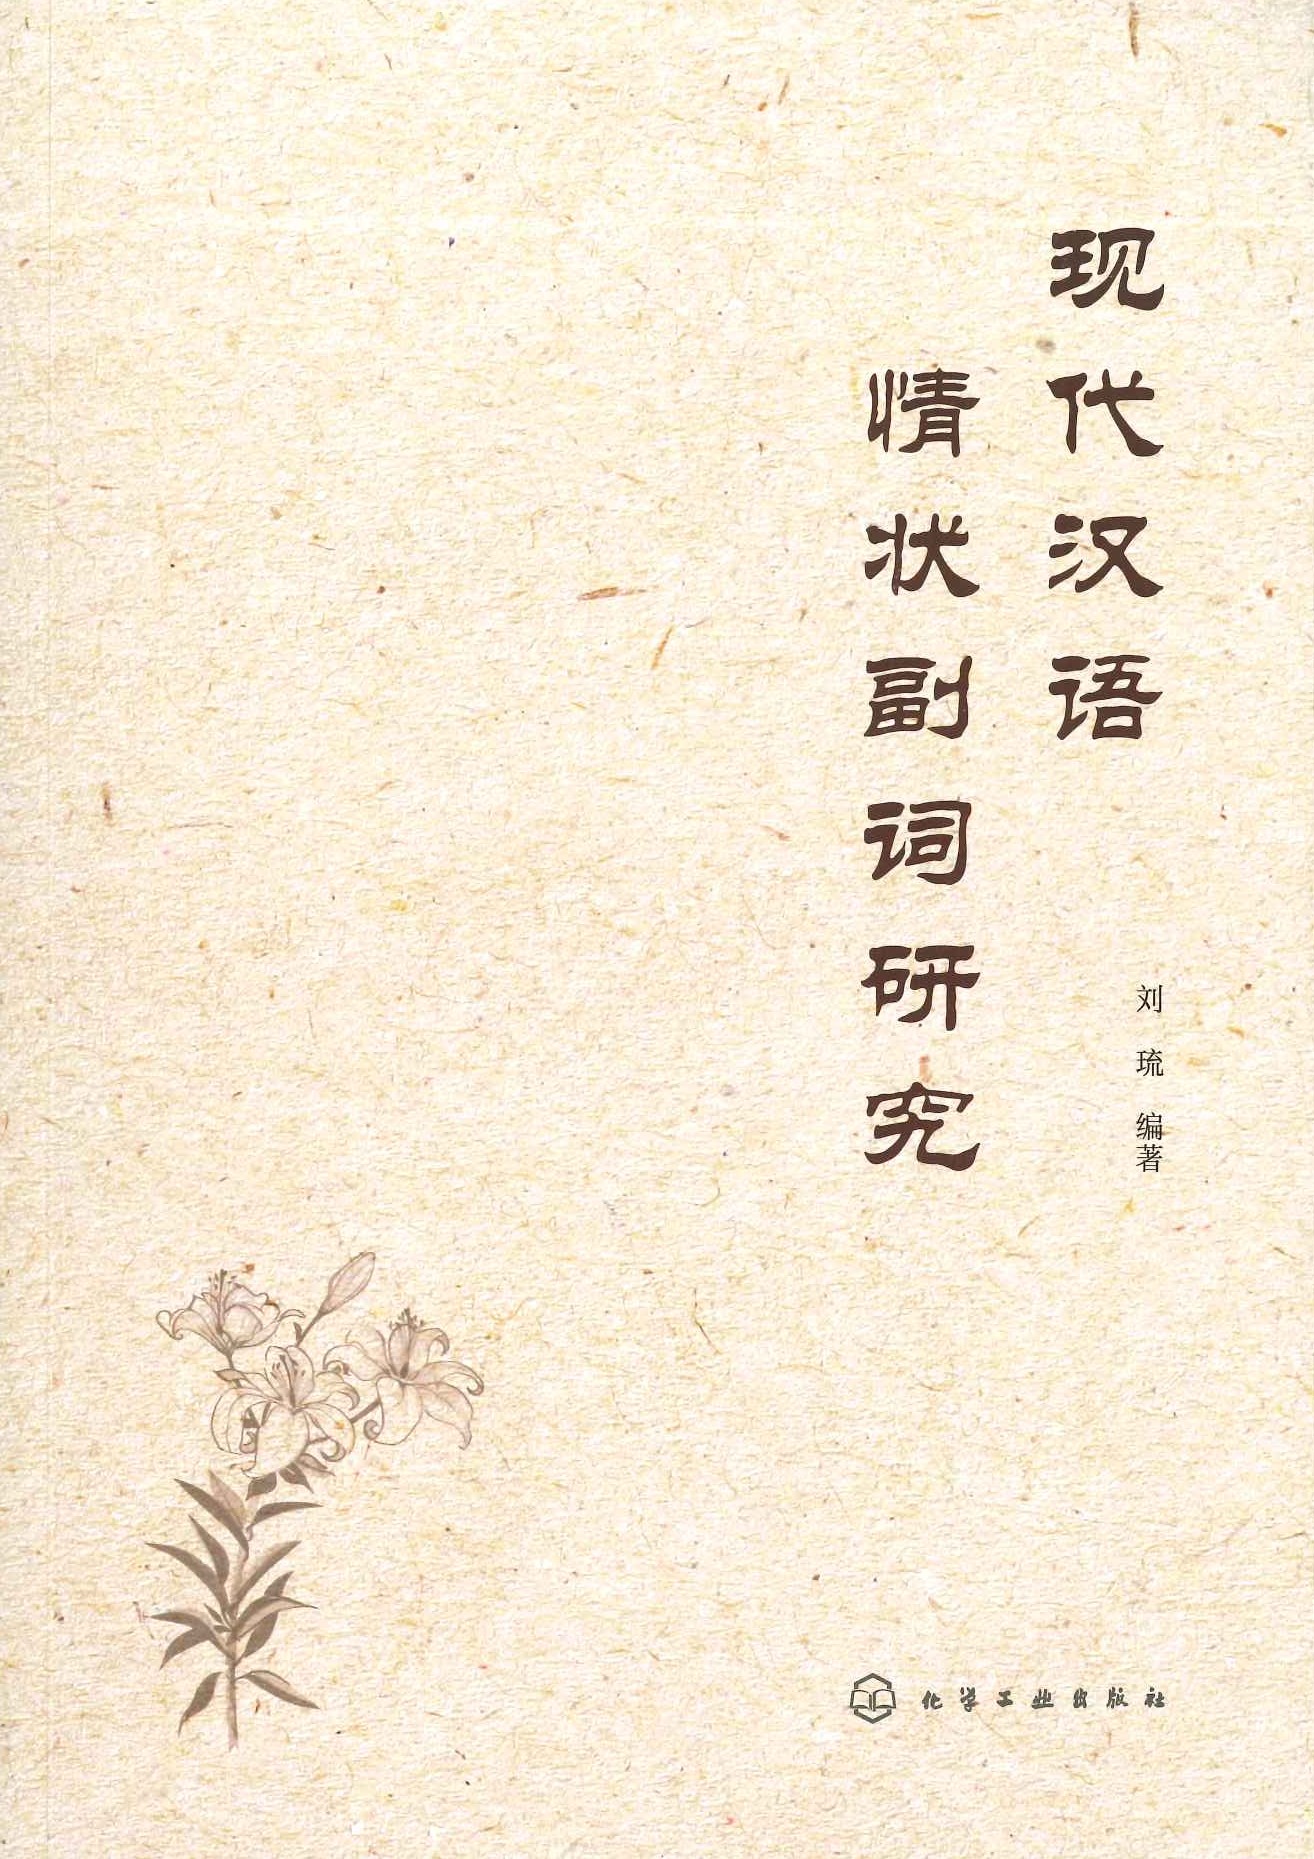 现代汉语
情状副词研究
刘 琉 编著
化学工业出版社